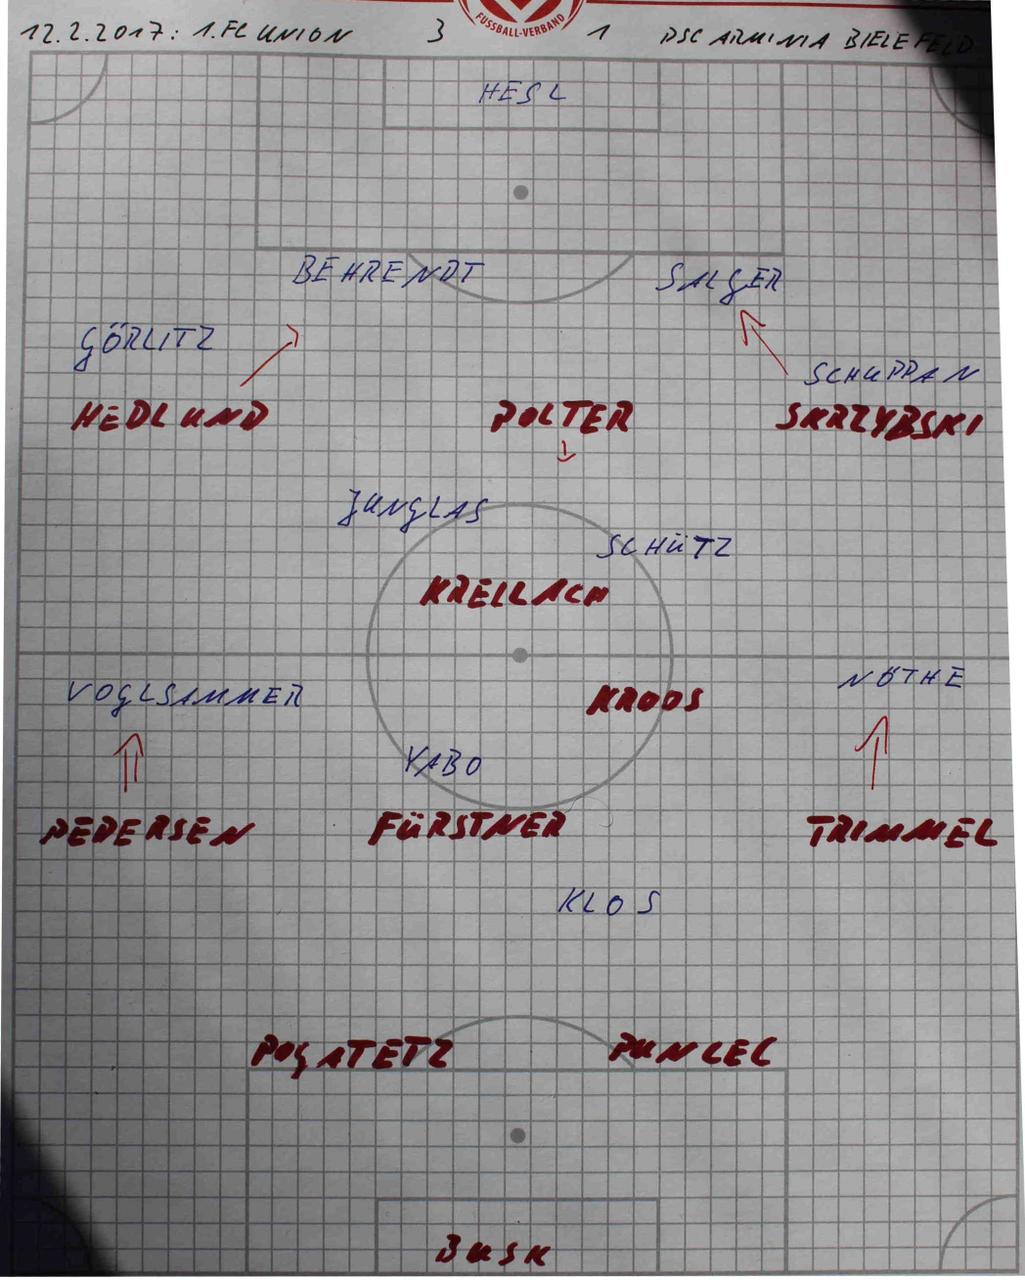 FUSSBALL-VERBAND
12.2.2017: 1. FC UNION 3 1 DSC ARMINIA BIELEFELD
HESL
BEHRENDT SALGER
GÖRLITZ
SCHUPPAN
HEDLUND POLTER SKRZYBSKI
JUNGLAS
SCHÜTZ
KREILACH
VOGLSAMMER NÖTHE
KROOS
YABO
PEDERSEN FÜRSTNER TRIMMEL
KLOS
POGATETZ PUNCEC
BUSK